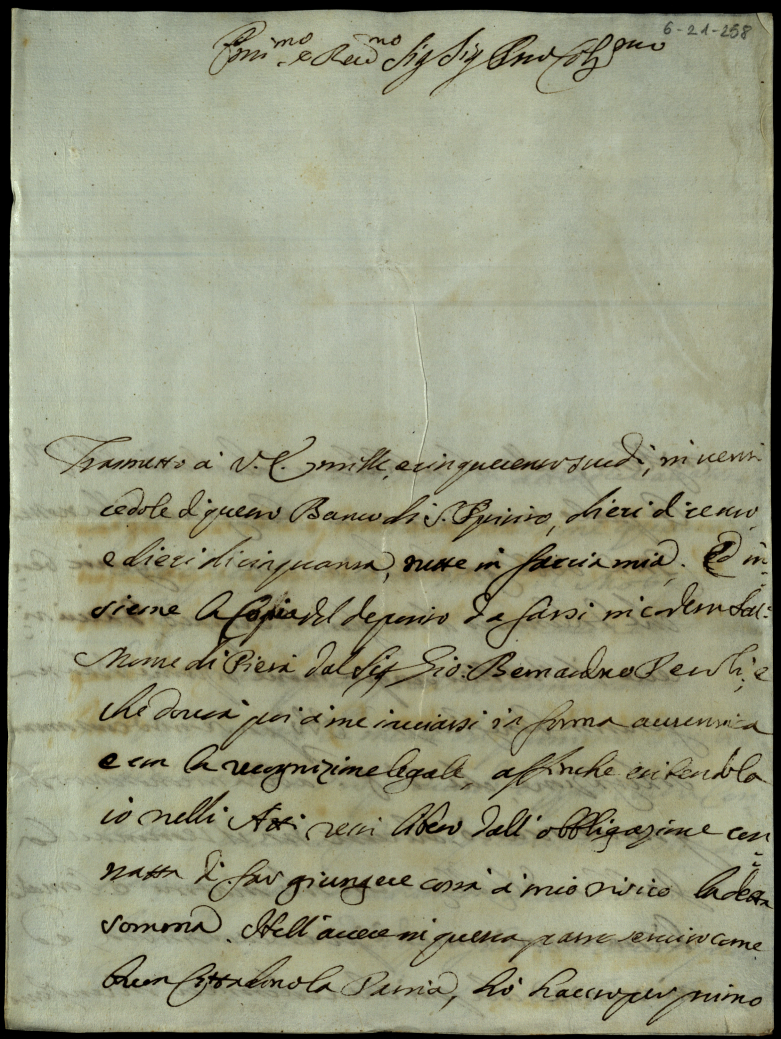 6-21-258
Ill.mo e Rev.mo Sig Sig Pron Col.mo
Trasmetto à V. S. mille, e cinquecento scudi, in venti
cedole di questo Banco di S. Spirito, dieci di cento
e dieci di cinquanta, tutte in faccia mia. Ed in=
sieme la Copia del deposito da farsi in codesto Sac:
Monte di Pietà dal Sig Gio: Bernardino
che dovrà poi à me inviarsi in forma autentica
e con la recognizione legale, affinche esibendola
io nelli Atti resti libero dall'obbligazione con=
tratta di far giungere costà à mio risico la detta
somma. Nell'avere in questa parte servito come
buon Cittadino la Patria, hò havuto per primo